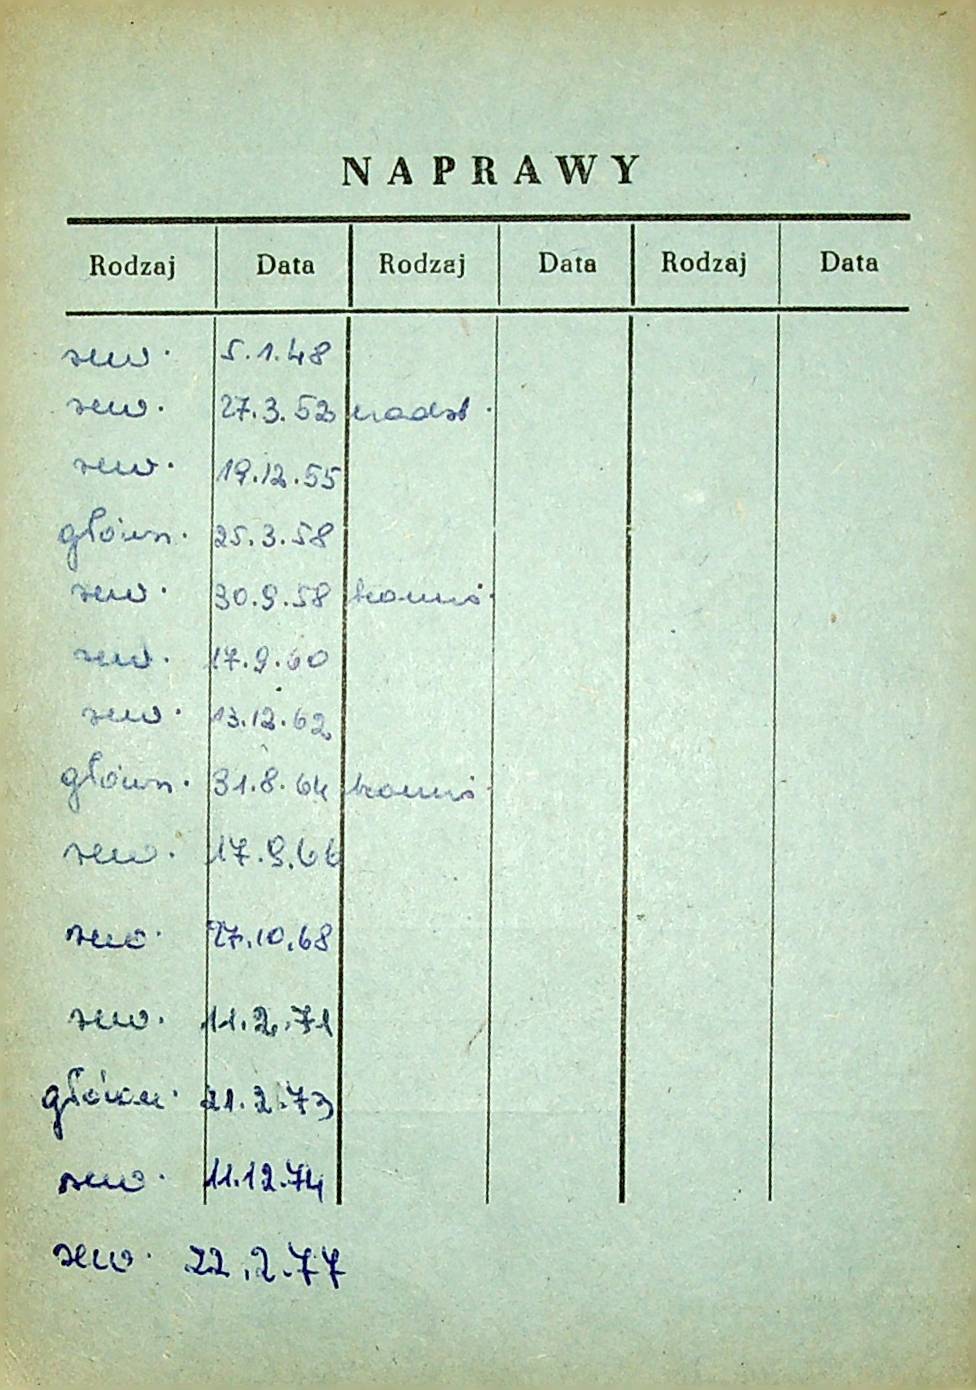 NAPRAWY
Rodzaj Data Rodzaj Data Rodzaj Data
rew. 5.1.48
rew. 27.3.52
rew. 19.12.55
główn. 25.3.58
rew. 30.9.58
rew. 17.9.60
rew. 13.12.62
główn. 31.8.64
rew. 17.9.66
rew. 27.10.68
rew. 11.2.71
główn. 21.2.73
rew. 11.12.74
rew. 22.2.77